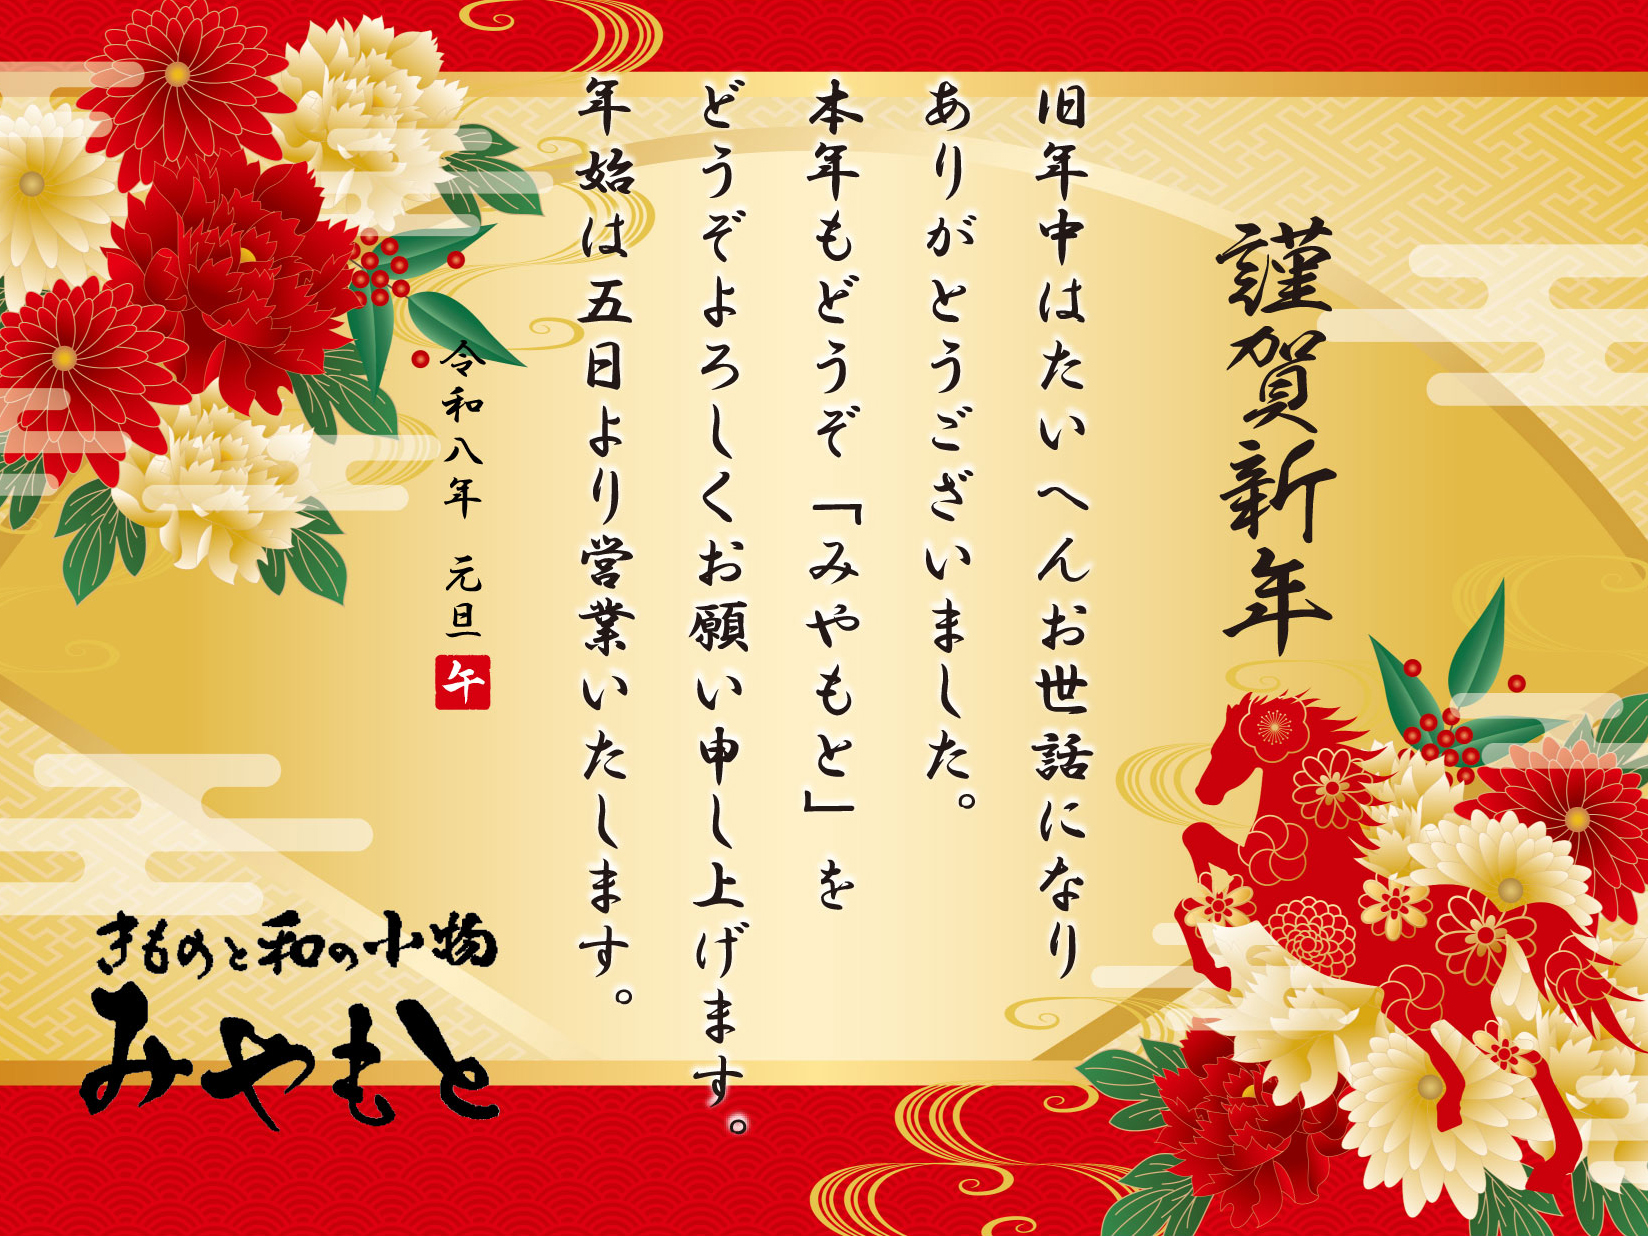 謹賀新年
旧年中はたいへんお世話になり
ありがとうございました。
本年もどうぞ「みやもと」を
どうぞよろしくお願い申し上げます。
年始は五日より営業いたします。
令和八年 元旦
午
きものと和の小物
みやもと